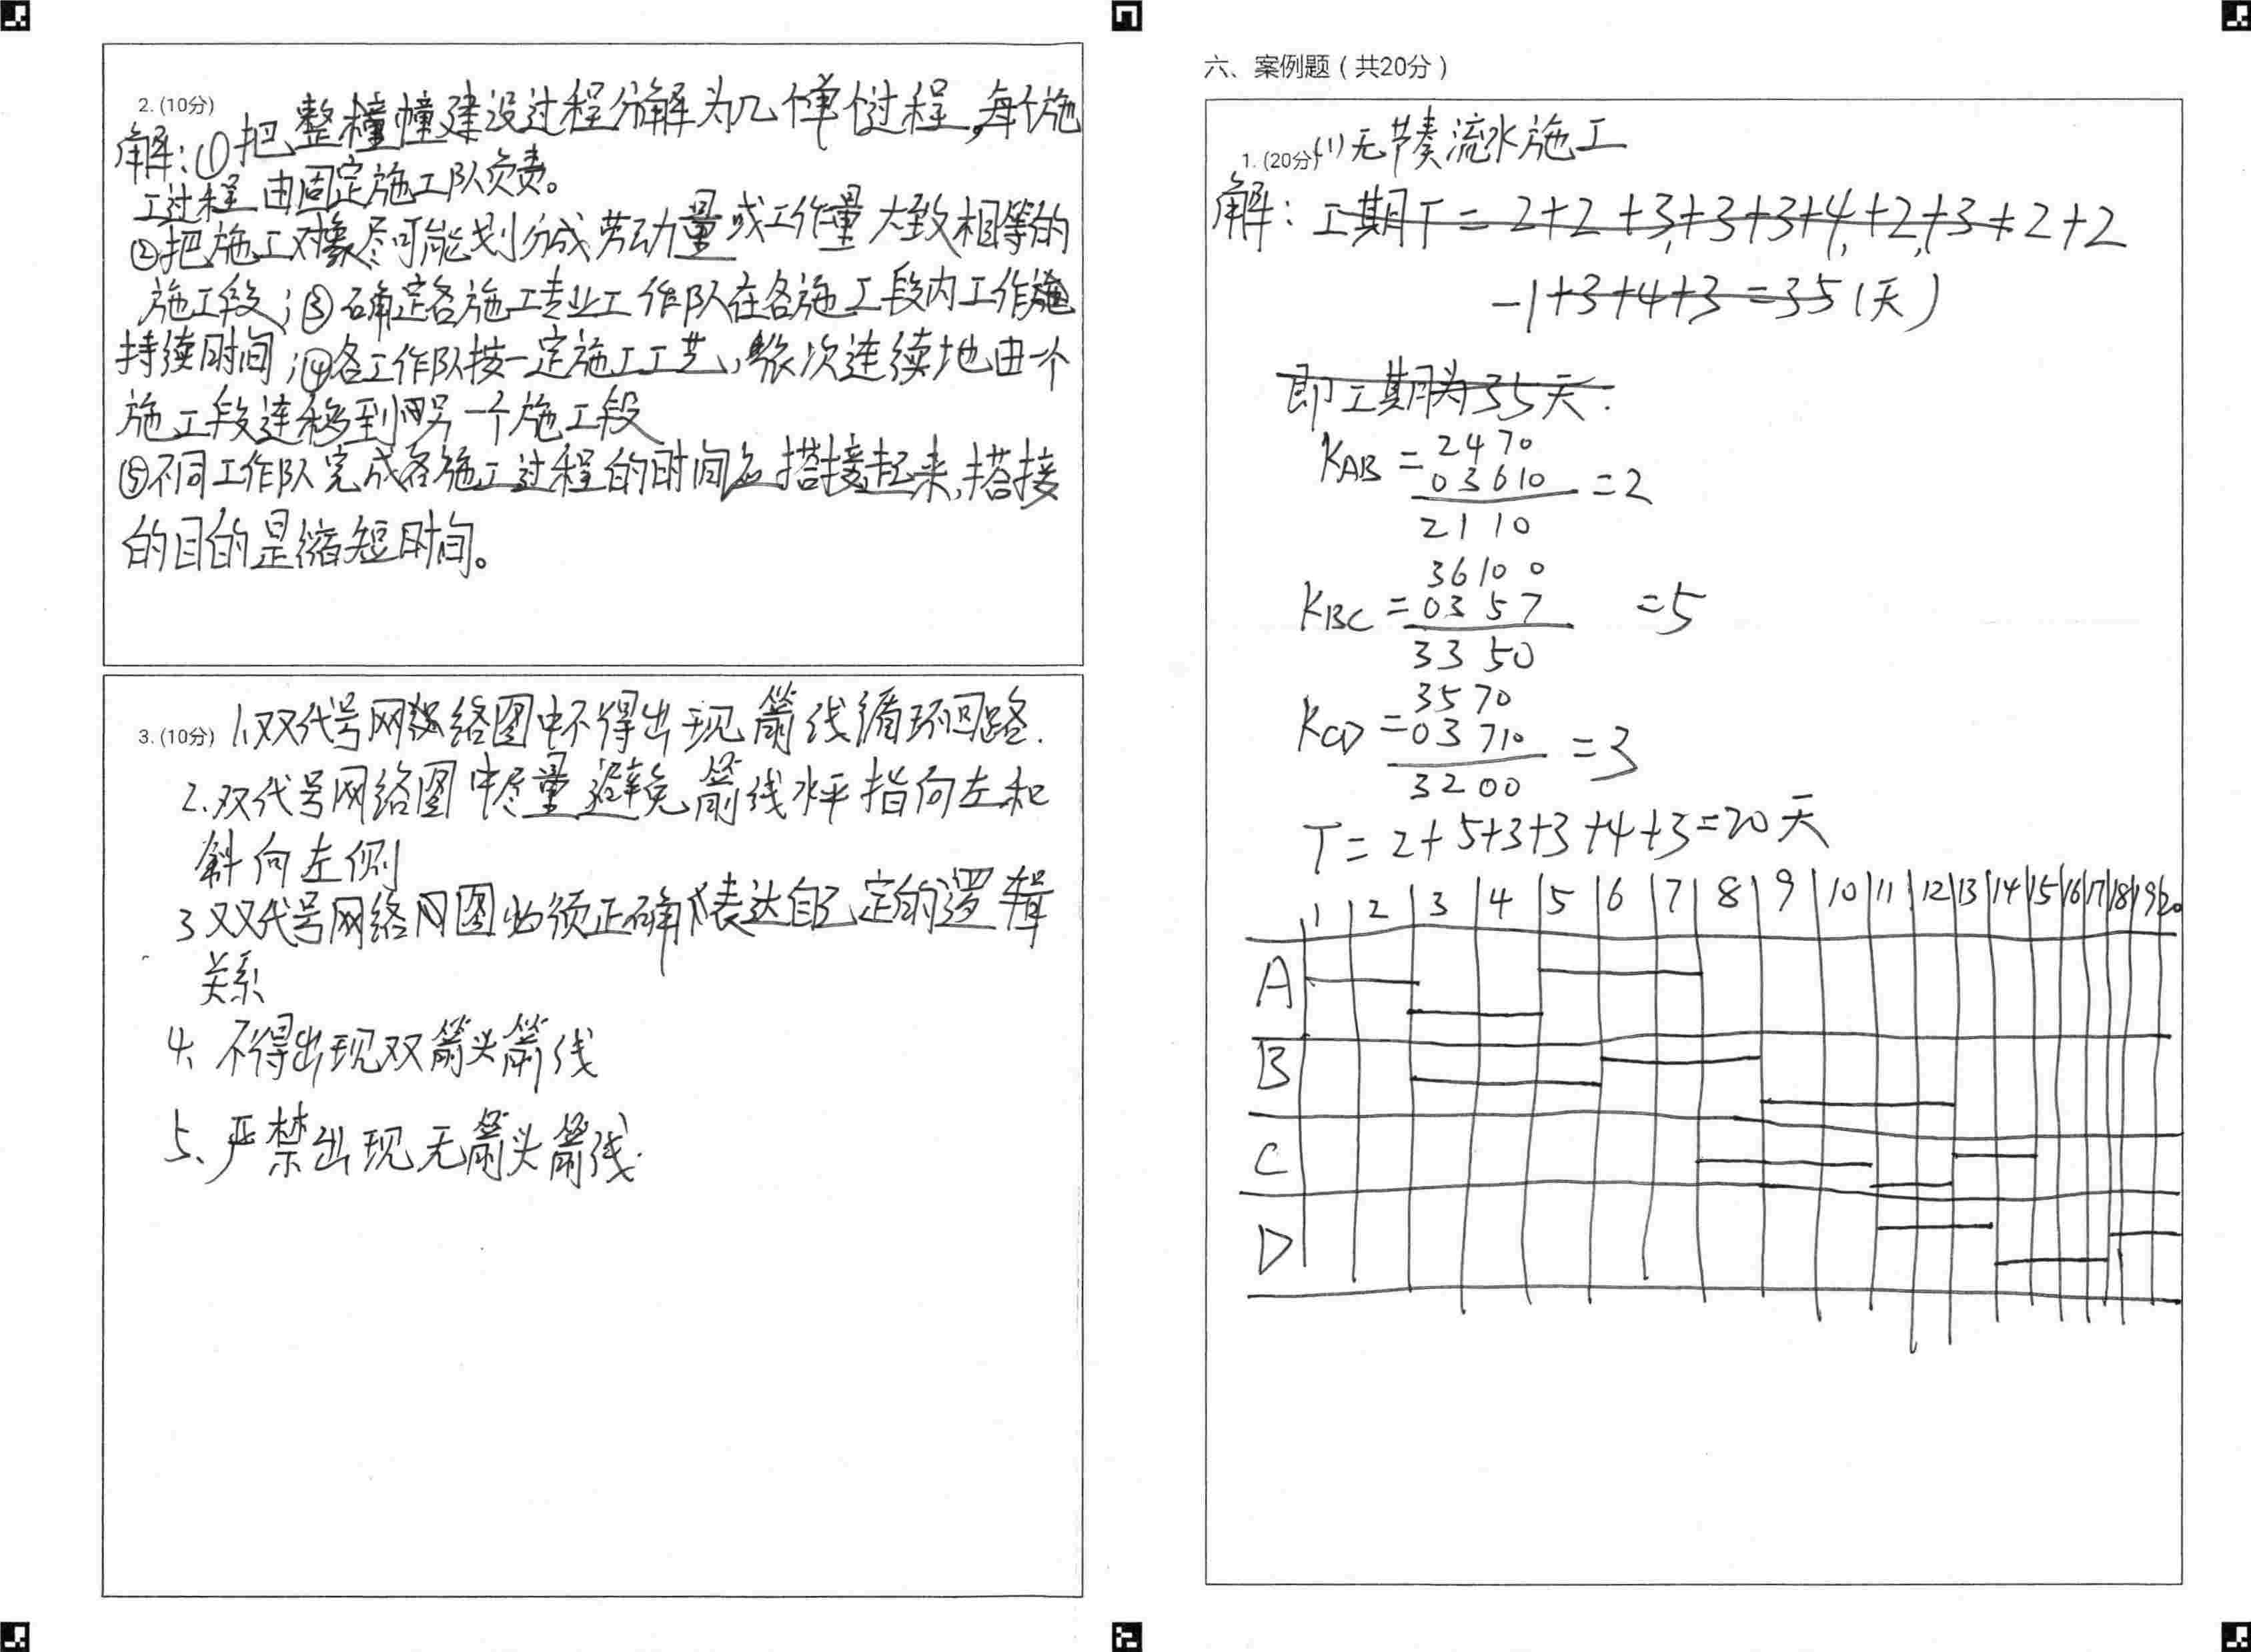 2. (10分)
解:①把整幢建设过程分解为几个单个过程,每个施
工过程由固定施工队负责。
②把施工对象尽可能划分成劳动量或工作量大致相等的
施工段;③确定各施工专业工作队在各施工段内工作
持续时间;④各工作队按一定施工工艺,依次连续地由一个
施工段连移到另一个施工段
⑤不同工作队完成各施工过程的时间搭接起来,搭接
的目的是缩短时间。
3. (10分) 1.双代号网络图中不得出现箭线循环回路.
2.双代号网络图中尽量避免箭线水平指向左和
斜向左侧
3 双代号网络网图必须正确表达自己定的逻辑
关系
4、不得出现双箭头箭线
5、严禁出现无箭头箭线.
六、案例题(共20分)
1. (20分) (1)无节奏流水施工
解: 工期T = 2+2+3+3+3+4+2+3+2+2
-1+3+4+3=35(天)
即工期为35天.
2 4 7 0
KAB = 0 3 6 10 =2
2 1 1 0
3 6 10 0
KBC = 0 3 5 7 =5
3 3 5 0
3 5 7 0
KCD = 0 3 7 10 =3
3 2 0 0
T= 2+5+3+3+4+3=20天
1 2 3 4 5 6 7 8 9 10 11 12 13 14 15 16 17 18 19 20
A
B
C
D